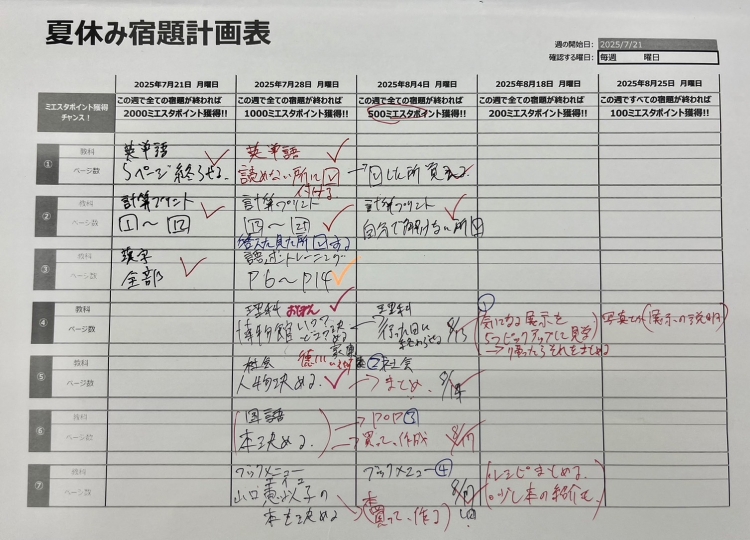 夏休み宿題計画表
週の開始日： 2025/7/21
確認する曜日： 毎週 曜日
2025年7月21日 月曜日 2025年7月28日 月曜日 2025年8月4日 月曜日 2025年8月18日 月曜日 2025年8月25日 月曜日
ミエスタポイント獲得 この週で全ての宿題が終われば この週で全ての宿題が終われば この週で全ての宿題が終われば この週で全ての宿題が終われば この週ですべての宿題が終われば
チャンス！ 2000ミエスタポイント獲得!! 1000ミエスタポイント獲得!! 500ミエスタポイント獲得!! 200ミエスタポイント獲得!! 100ミエスタポイント獲得!!
① 教科 英単語 英単語
ページ数 5ページ終らせる。 読めない所に☑ 付ける → ☑した所覚える
② 教科 計算プリント 計算プリント 計算プリント
ページ数 1〜12 13〜25 自分で解けない所☑
答え見た所☑する
③ 教科 漢字 語い力トレーニング
ページ数 全部 P6〜P14
④ 教科 理科 理科 ①
ページ数 博物館 行った日に終わらせる 8/15 気になる展示を 写真での(展示の説明)
5つピックアップして見る
→帰ったらそれをまとめる
⑤ 教科 社会 徳川 ②社会
ページ数 人物決める。 → まとめ 8/14
⑥ 教科 国語 → POP③
ページ数 本決める。 → 買って、作成 8/17
⑦ 教科 ブックメニュー ブックメニュー④
ページ数 山口恵以子の 8/17 レシピまとめる。
本を決める 本買って、作る 少し本の紹介も。